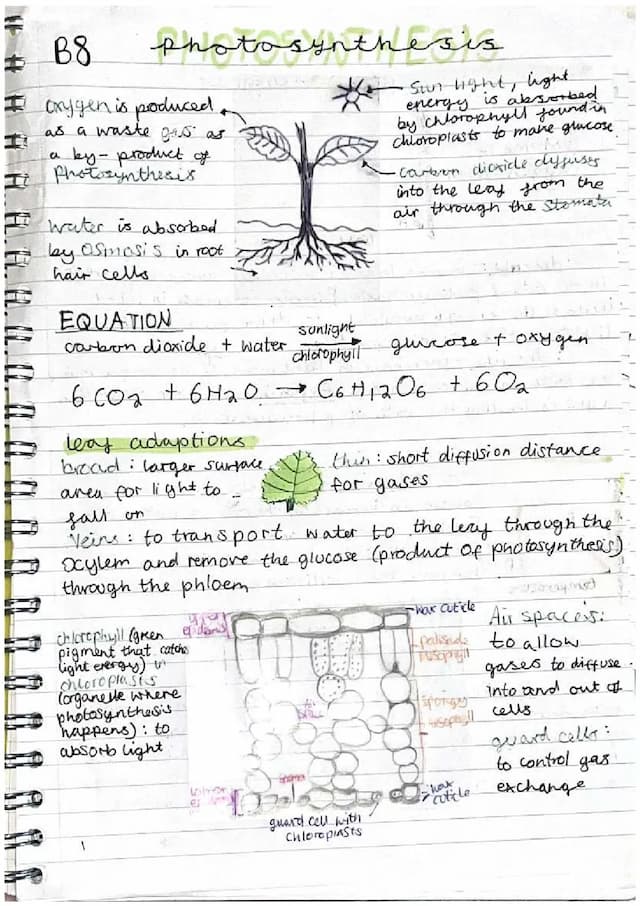 B8 Photosynthesis
PHOTOSYNTHESIS
oxygen is produced
as a waste gas as
a by-product of
Photosynthesis
Water is absorbed
by osmosis in root
hair cells
Sun light, light
energy is absorbed
by chlorophyll found in
chloroplasts to make glucose
Carbon dioxide diffuses
into the leaf from the
air through the Stomata
EQUATION
carbon dioxide + water sunlight → glucose + oxygen
chlorophyll
6CO2 + 6H2O → C6H12O6 + 6O2
leaf adaptions
broad : larger surface
area for light to
fall on
thin : short diffusion distance
for gases
Veins : to transport water to the leaf through the
ocylem and remove the glucose (product of photosynthesis)
through the phloem
chlorophyll (green
pigment that catches
light energy) in
chloroplasts
(organelle where
photosynthesis
happens) : to
absorb light
upper
epidermis
wax cuticle
palisade
mesophyll
air
space
spongy
mesophyll
stoma
wax
cuticle
guard cell with
chloroplasts
Air spaces:
to allow
gases to diffuse
into and out of
cells
guard cells:
to control gas
exchange
1